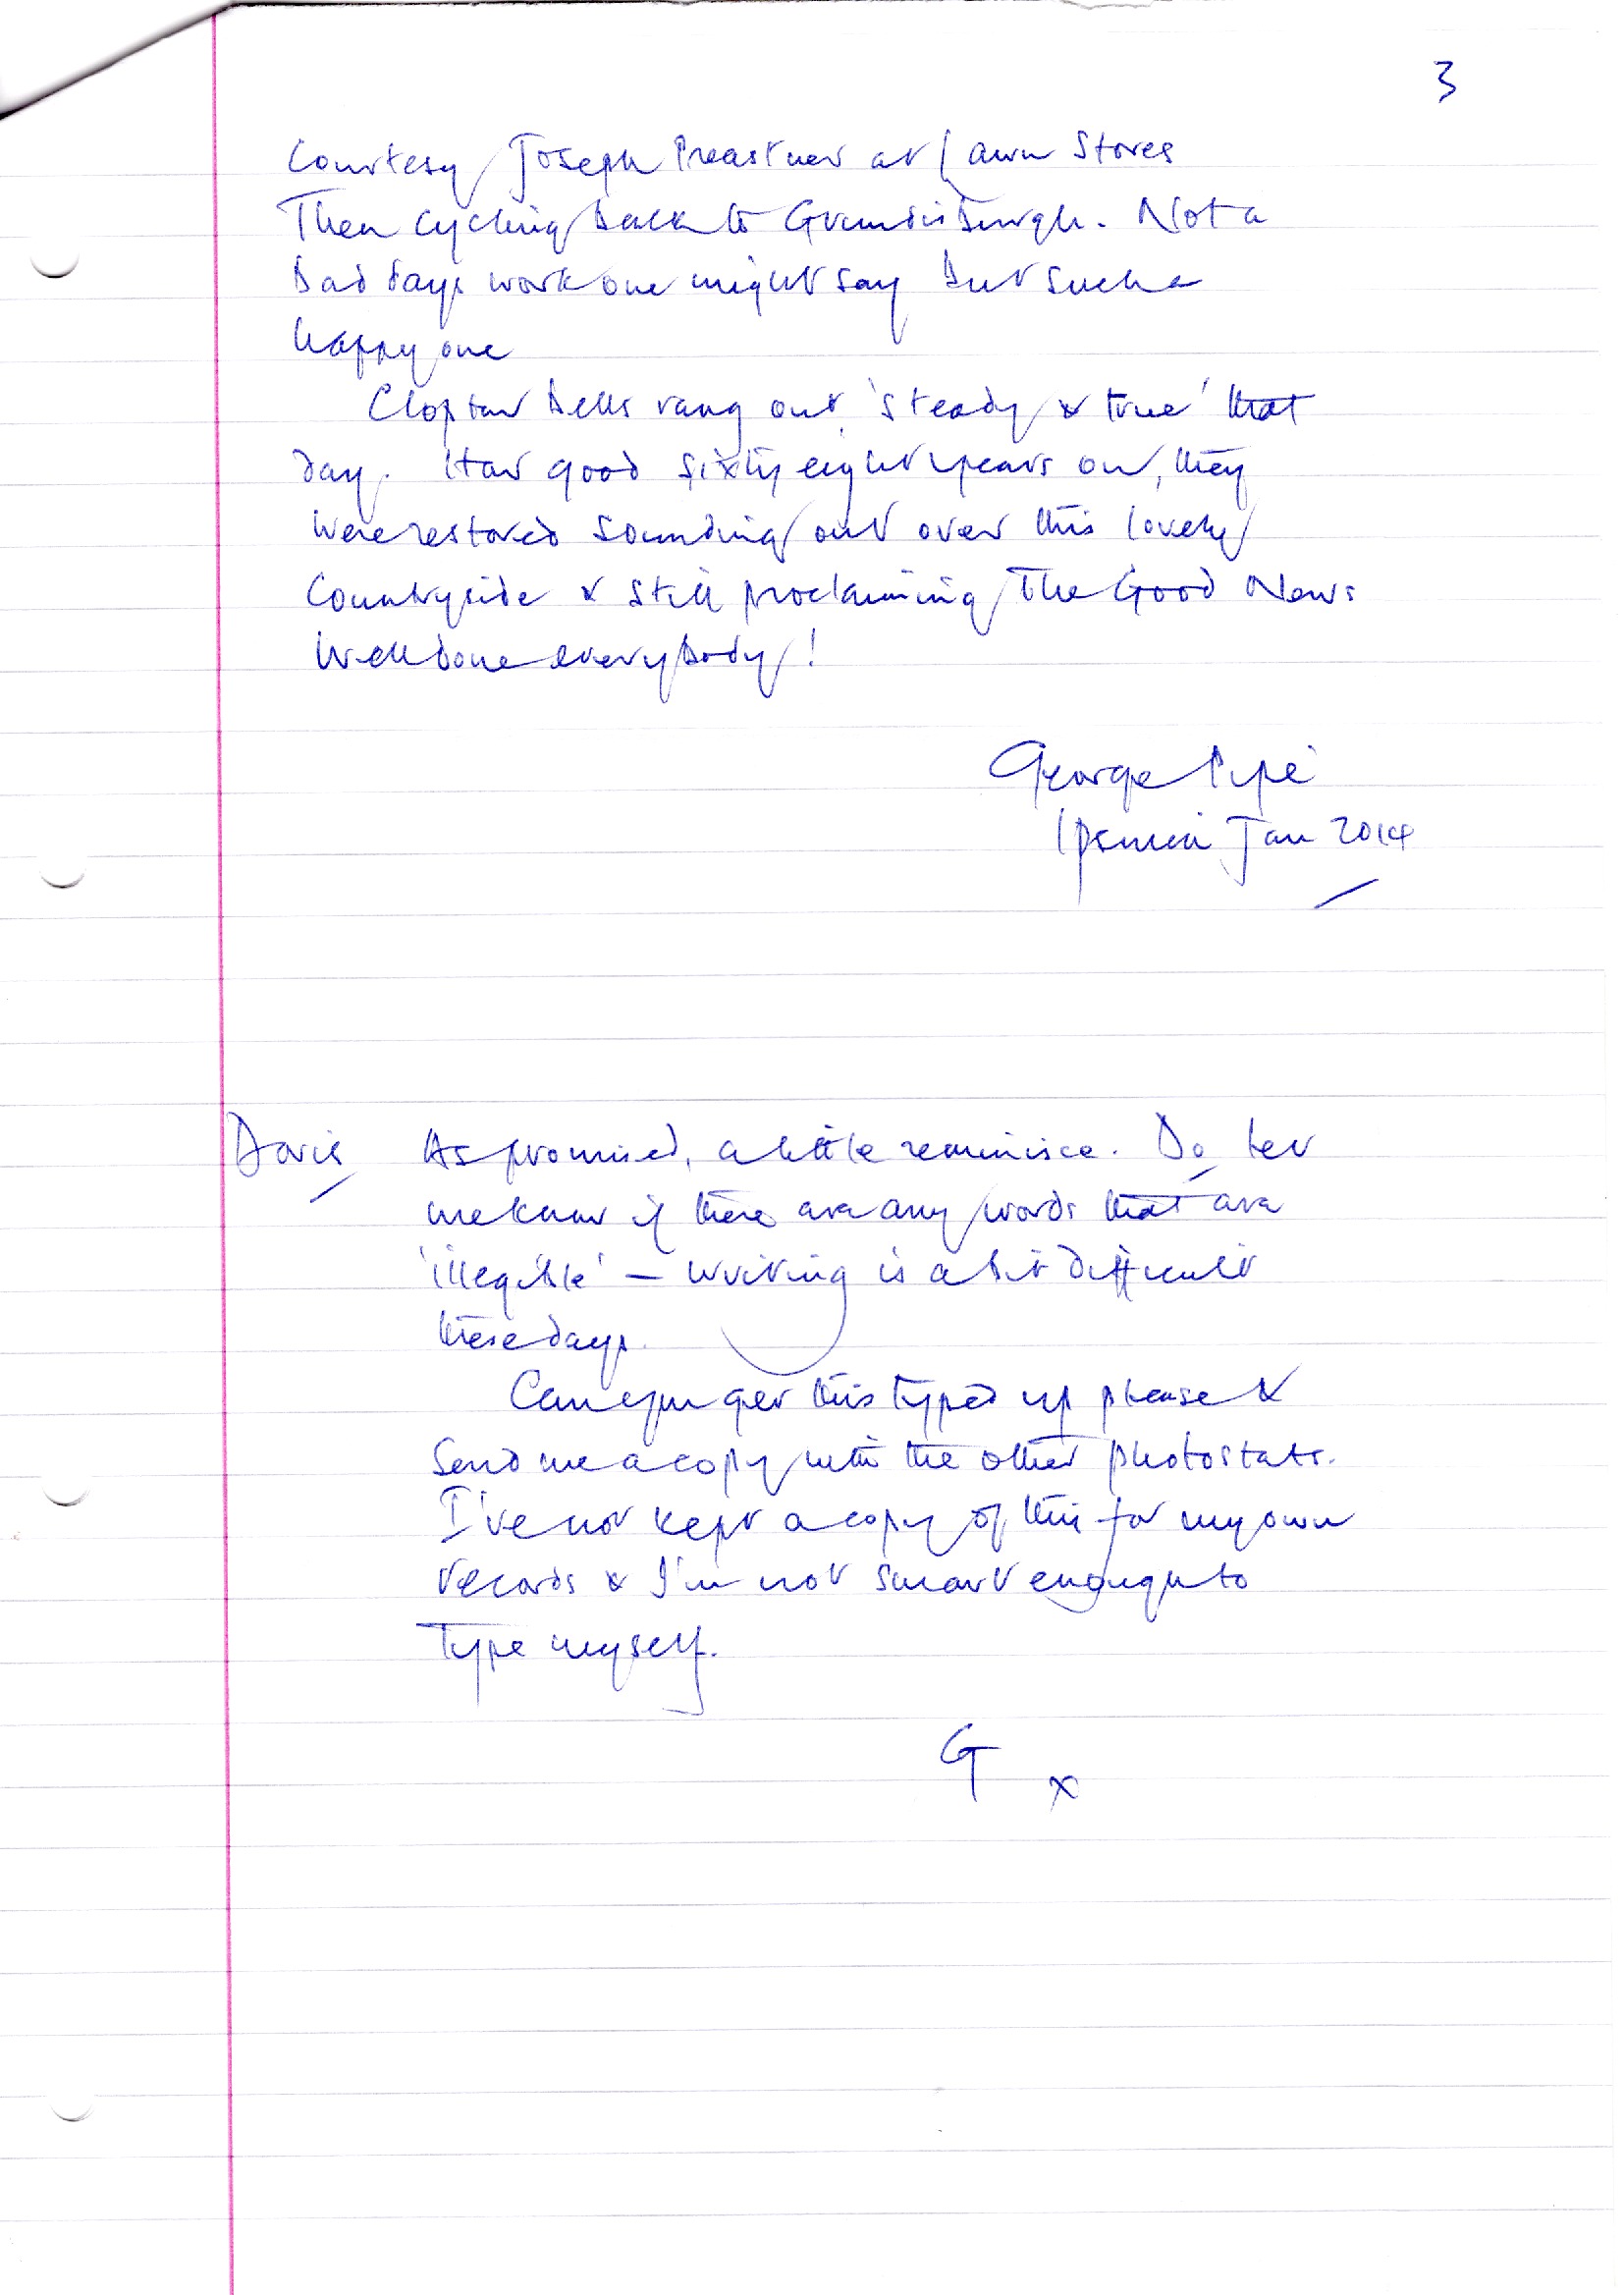 3
Courtesy Joseph at Lawn Stores
Then cycling back to Grundisburgh. Not a
bad days work one might say but such a
happy one
Clopton bells rang out 'steady & true' that
day. How good sixty eight years on, they
were restored sounding out over this lovely
Countryside & still proclaiming The Good News
Well done everybody!
George Pipe
Ipswich Jan 2014
Doris As promised, a little reminisce. Do let
me know if there are any words that are
'illegible' – writing is a bit difficult
these days.
Can you get this typed up please &
send me a copy with the other photostats.
I've not kept a copy of this for my own
records & I'm not smart enough to
type myself.
G x